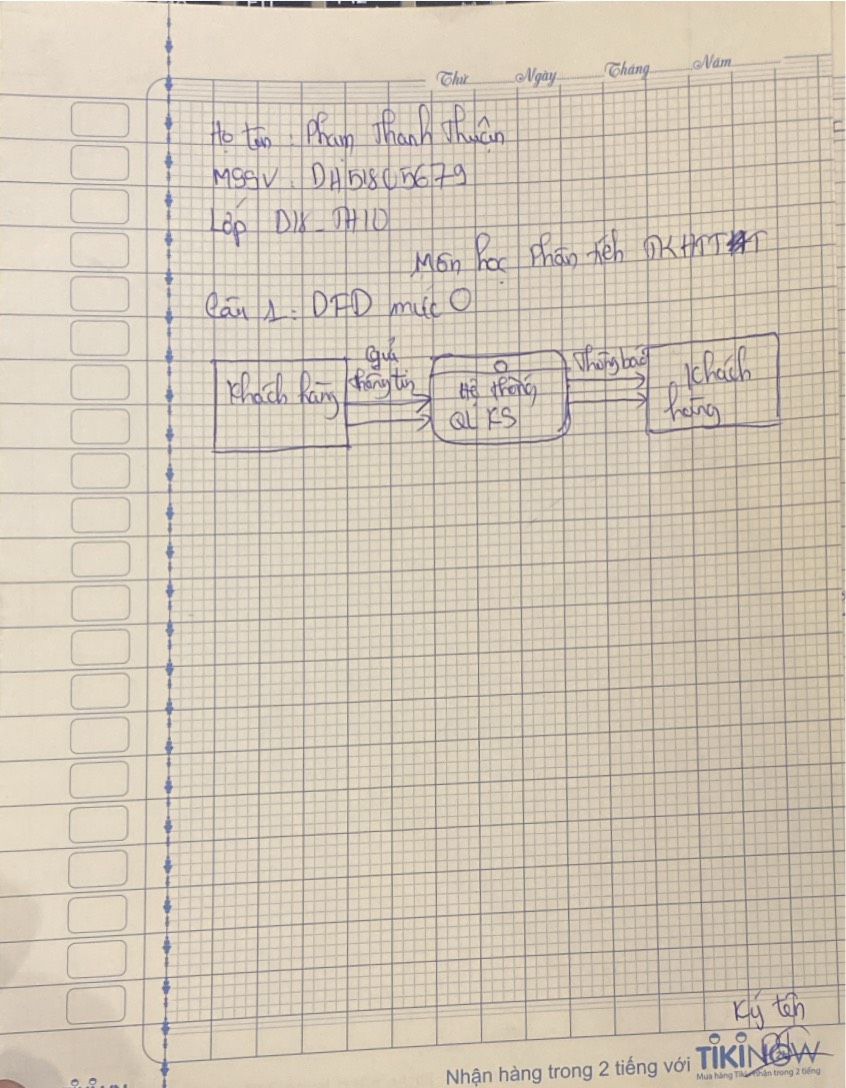 Thứ Ngày Tháng Năm
Họ tên : Phạm Thanh Thuận
MSSV : DH51805679
Lớp D18_TH10
Môn học Phân tích TKHTTT
Câu 1 : DFD mức 0
Khách hàng
Gửi
thông tin
0
Hệ thống
QL KS
Thông báo
Khách
hàng
Ký tên
Nhận hàng trong 2 tiếng với TIKINOW
Mua hàng Tiki nhận trong 2 tiếng